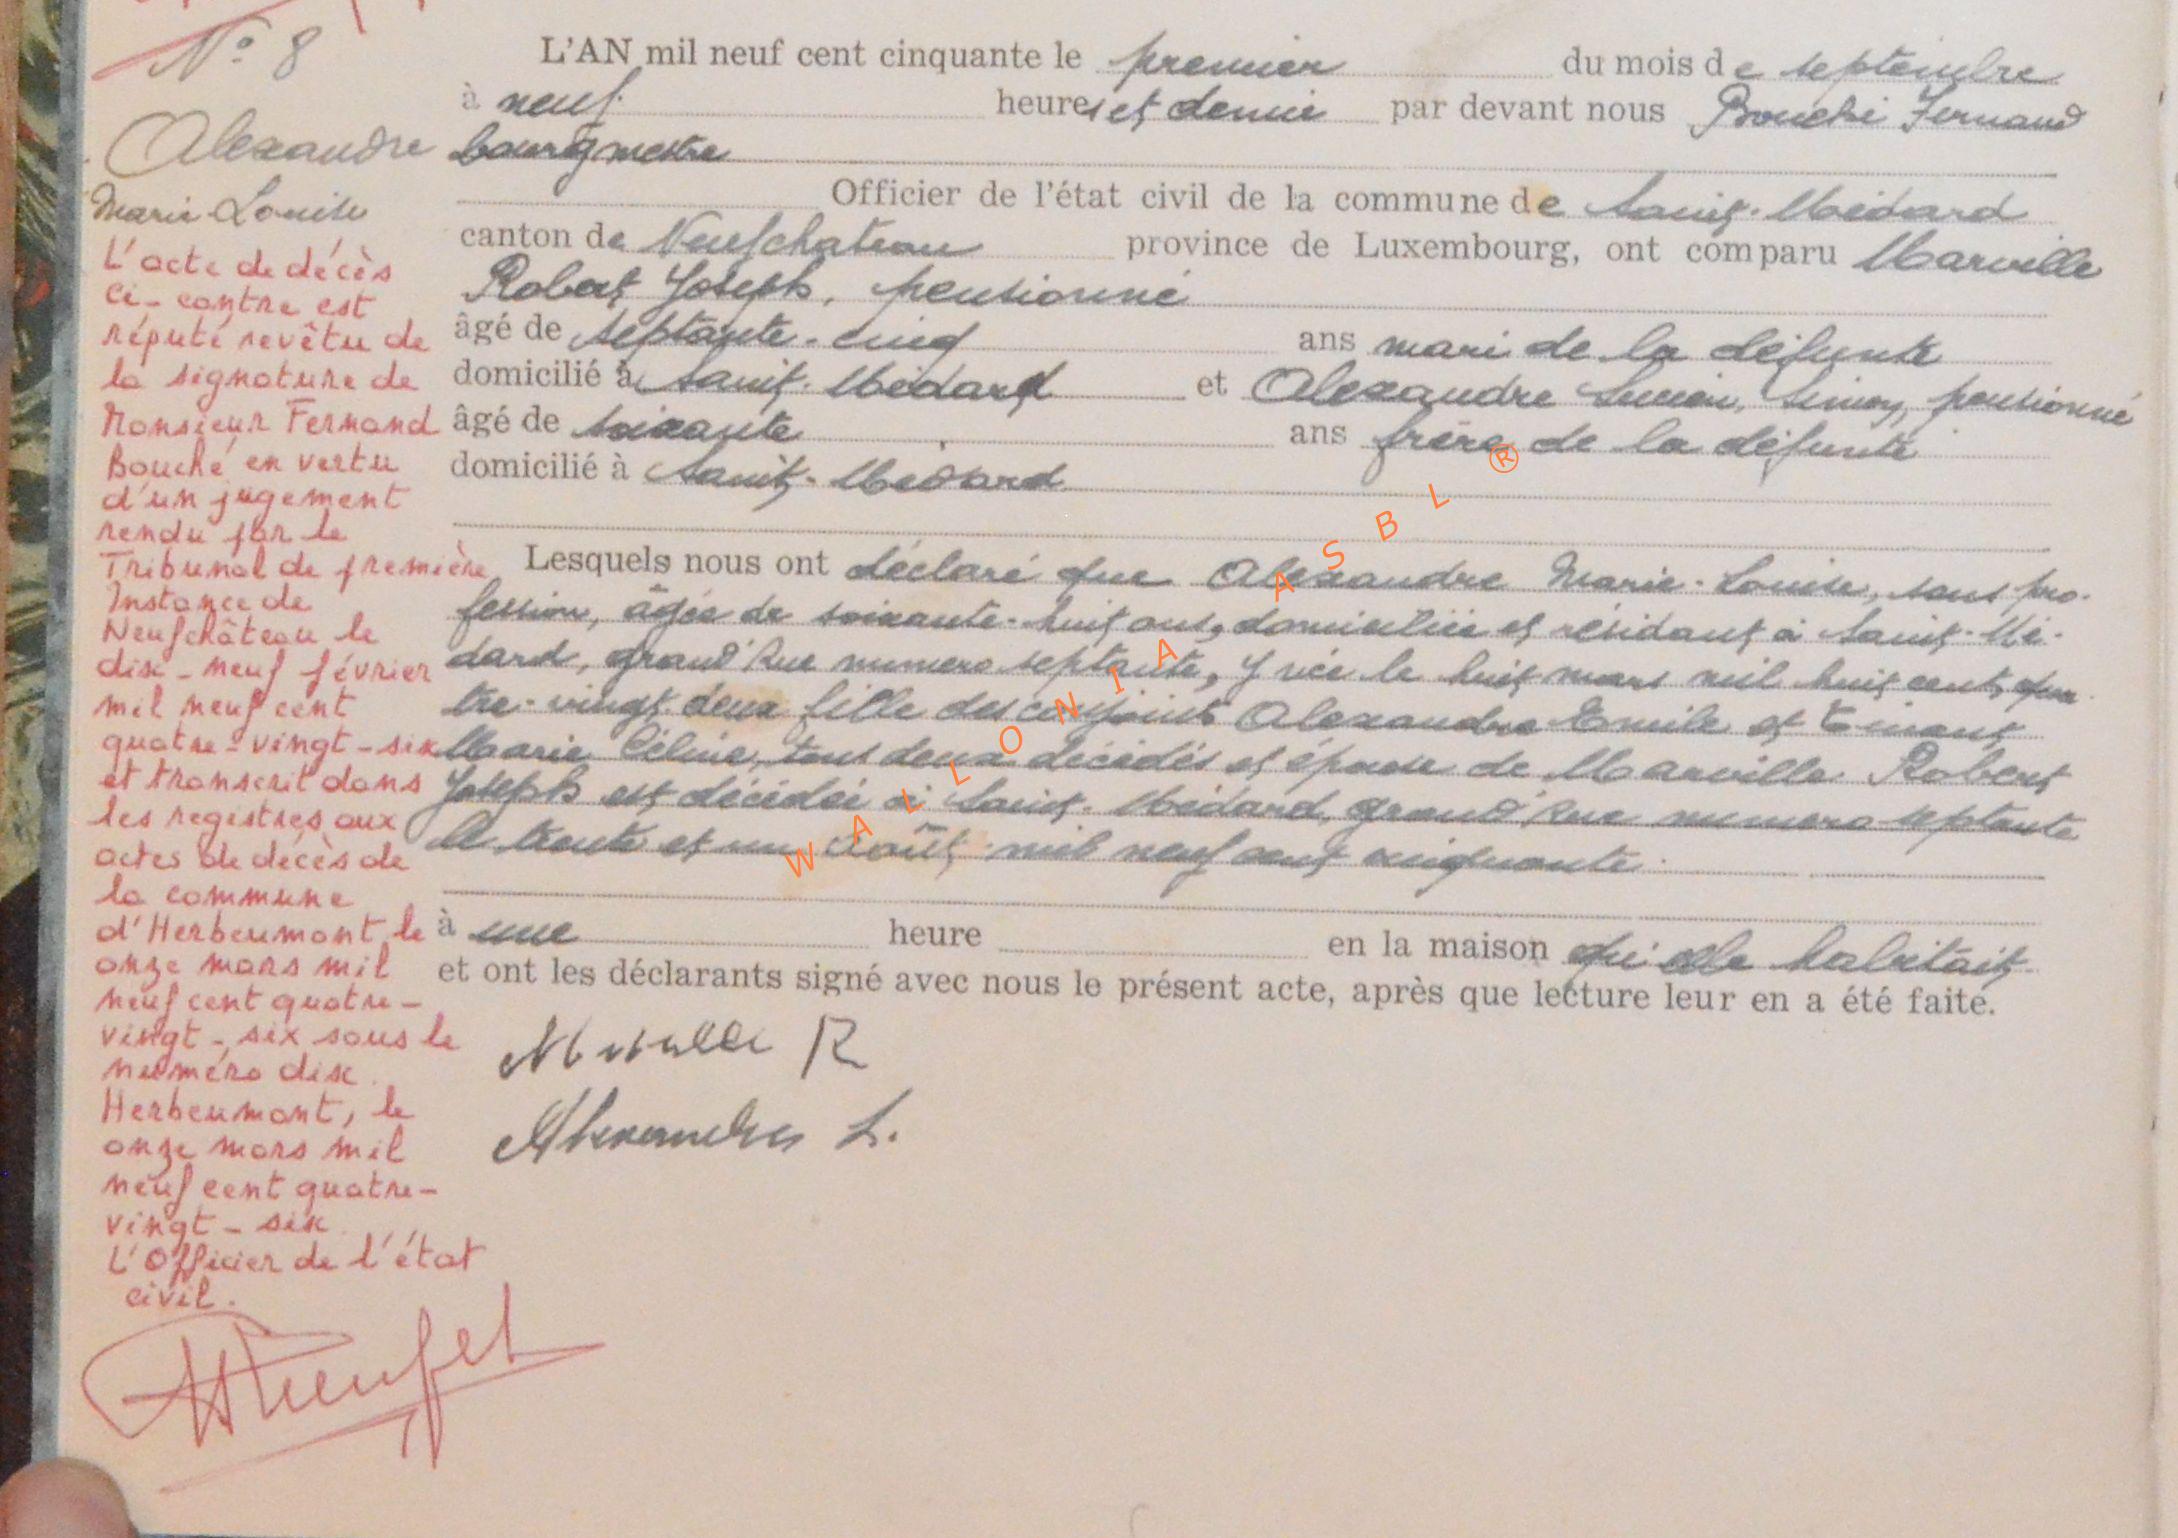 N° 8
Alexandre
Marie-Louise
L'acte de décès
ci-contre est
réputé revêtu de
la signature de
Monsieur Fernand
Bouché en vertu
d'un jugement
rendu par le
Tribunal de première
Instance de
Neufchâteau le
dix-neuf février
mil neuf cent
quatre-vingt-six
et transcrit dans
les registres aux
actes de décès de
la commune
d'Herbeumont le
onze mars mil
neuf cent quatre-
vingt-six sous le
numéro dix.
Herbeumont, le
onze mars mil
neuf cent quatre-
vingt-six.
L'Officier de l'état
civil.
L'AN mil neuf cent cinquante le premier du mois de septembre
à neuf heures et demie par devant nous Bouché Fernand
bourgmestre
Officier de l'état civil de la commune de Saint-Médard
canton de Neufchateau province de Luxembourg, ont comparu Marville
Robert Joseph, pensionné
âgé de septante-cinq ans mari de la défunte
domicilié à Saint-Médard et Alexandre Lucien, pensionné
âgé de soixante ans frère de la défunte
domicilié à Saint-Médard
Lesquels nous ont déclaré que Alexandre Marie-Louise, sans pro-
fession, âgée de soixante-huit ans, domiciliée et résidant à Saint-Mé-
dard, grand'Rue numero septante, y née le huit mars mil huit cent qua-
tre-vingt deux fille des conjoints Alexandre Emile et Tinant
Marie Céline, tous deux décédés et épouse de Marville Robert
Joseph est décédée à Saint-Médard, grand'Rue numero septante
le trente et un août mil neuf cent cinquante.
à une heure en la maison qu'elle habitait
et ont les déclarants signé avec nous le présent acte, après que lecture leur en a été faite.
Marville R
Alexandre L.
WALLONIA ASBL ®